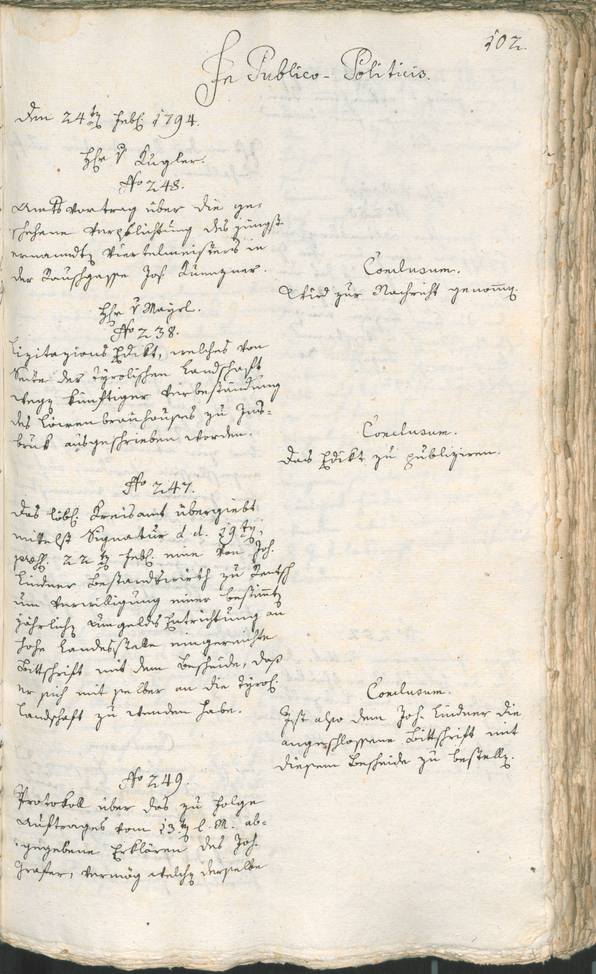 102.
In Publico-Politicis.
Den 24ten Feb. 1794.
Hr v Kugler.
No 248.
Amtsvortrag über die ge-
schehene Verpflichtung des jüngst
ernanndten Viertelmeisters in
der Rauschgasse Jos.
Conclusum.
Wird zur Nachricht genomen.
Hr v Mayrl.
No 238.
Lizitazions Edikt, welches von
Seite der tyrolischen Landschaft
wegen künftiger Verbeständung
des Löwenbrauhauses zu Ins-
bruk ausgeschrieben worden.
Conclusum.
Das Edikt zu publiziren.
No 247.
Das löbl. Kreisamt übergiebt
mitelst Signatur d. d. 19ten,
22ten Feb. eine von Joh.
Lindner Bestandwirth zu Rentsch
um Verwilligung einer bestimten
jährlichen Umgelds Entrichtung an
hohe Landesstelle eingereichte
Bittschrift mit dem Bescheide, daß
er sich mit selber an die tyrol.
Landschaft zu wenden habe.
Conclusum.
Ist also dem Joh. Lindner die
angeschlossene Bittschrift mit
diesem Bescheide zu bestellen.
No 249.
Protokoll über das zu Folge
Auftrages vom 13ten l. M. ab-
gegebene Erklären des Joh.
Grafer, vermög welchen derselbe